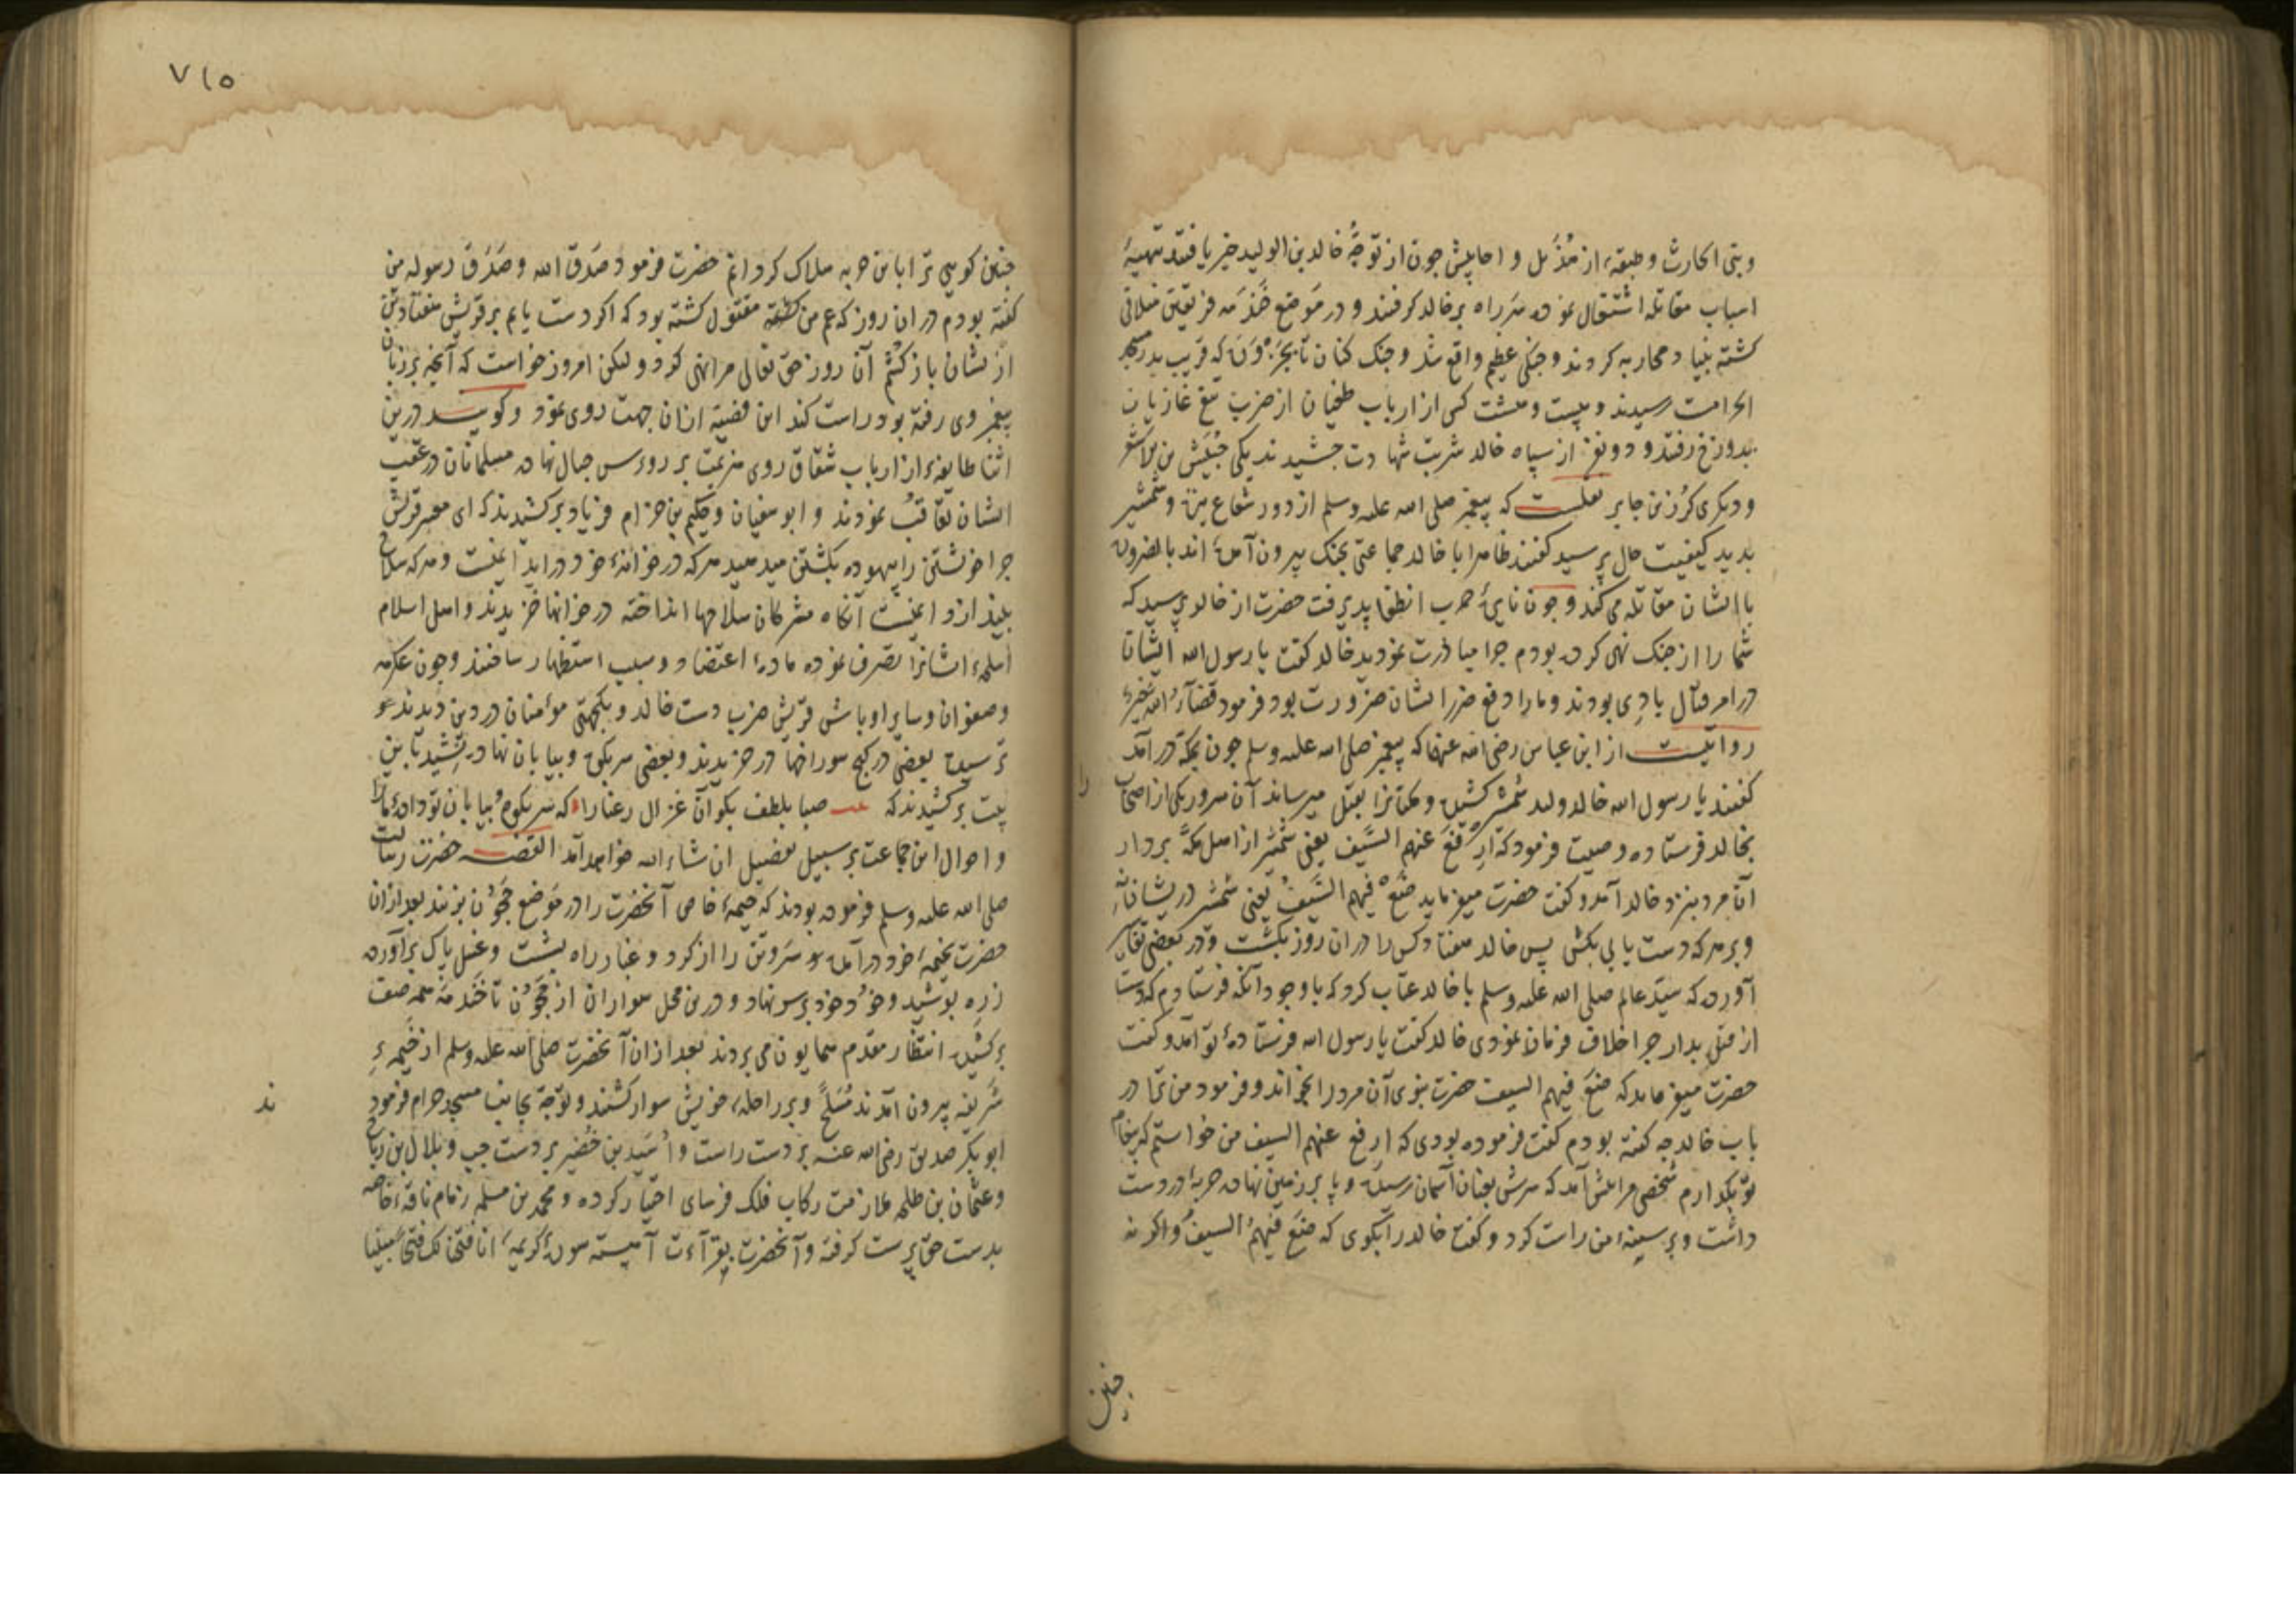 وبنی الحارث وطبقهٔ از هُذَیل و احابیش چون از توجّهُ خالد بن الولید خبر یافتند تهیئهٔ
اسباب مقاتله اشتغال نموده سر راه بر خالد گرفتند و در مَوضع خَندَمَه فریقین متلاقی
کشته بنیاد محاربه کردند و جنکی عظیم واقع شد و جنک کنان تا بحَزوَرَه که قریب بدر مسجد
الحرامست رسیدند و بیست و هشت کس از ارباب طغیان از ضرب تیغ غازیان
بدوزخ رفتند و دو نفر از سپاه خالد شربت شهادت چشیدند یکی حُبَیش بن الاشعر
و دیکری کُرز بن جابر نقلست که پیغمبر صلی الله علیه وسلم از دور شعاع نیزه و شمشیر
بدید کیفیت حال پرسید کفتند ظاهرا با خالد جماعتی بجنک بیرون آمده اند بالضروره
با ایشان مقاتله می کند و چون نایرهٔ حرب انطفا پذیرفت حضرت از خالد پرسید که
شما را از جنک نهی کرده بودم چرا مبادرت نمودید خالد کفت یا رسول الله ایشان
در امر قتال بادی بودند و ما را دفع ضرر ایشان ضرورت بود فرمود قضآءُ الله خیر
روایتست از ابن عباس رضی الله عنهما که پیغمبر صلی الله علیه وسلم چون بمکه در آمد
کفتند یا رسول الله خالد ولید شمشیر کشیده و مکیانرا بقتل میرساند آن سرور یکی از اصحاب
را
بخالد فرستاده وصیت فرمود که ارفَع عنهم السَّیف یعنی شمشیر از اهل مکّه بردار
آن مرد بنزد خالد آمد و کفت حضرت میفرماید ضَع فیهم السَّیفُ یعنی شمشیر در یشان نه
و بر هر که دست یابی بکش پس خالد هفتاد کس را در ان روز بکشت و در بعضی تفاسیر
آورده که سیّد عالم صلی الله علیه وسلم با خالد عتاب کرد که با وجود آنکه فرستادم که دست
از قتل بدار چرا خلاف فرمان نمودی خالد کفت یا رسول الله فرستادهٔ تو آمد و کفت
حضرت میفرماید که ضَع فیهم السیف حضرت نبوی آن مرد را بخواند و فرمود من ترا در
باب خالد چه کفته بودم کفت فرموده بودی که ارفع عنهم السیف من خواستم که پیغام
تو بکذارم شخصی مرا پیش آمد که سرش بعنان آسمان رسیده و پا بر زمین نهاده حربهٔ در دست
داشت و بر سینهٔ من راست کرد و کفت خالد را بکوی که ضَع فیهم السیفُ و اکر نه
چنین
۷۱۵
چنین کویی ترا باین حربه هلاک کردانم حضرت فرمود صَدَق الله و صَدَقَ رسوله من
کفته بودم در ان روز که عم من حمزه مقتول کشته بود که اکر دست یابم بر قریش هفتاد تن
از یشان باز کشم آن روز حق تعالی مرا نهی کرد و لیکن امروز خواست که آنچه بر زبان
پیغمبر وی رفته بود راست کند این قضیّه ازان جهت روی نمود و کویند درین
اثنا طایفهٔ از ارباب شقاق روی هزیمت بر روٴس جبال نهاده مسلمانان در عقب
ایشان تعاقبُ نمودند و ابو سفیان و حکیم بن حزام فریاد بر کشیدند که ای معشر قریش
چرا خویشتن را بیهوده بکشتن میدهید هر که در خوانهٔ خود در اید ایمنست و هر که سلاح
بیندازد ایمنست آنکاه مشرکان سلاحها انداخته در خوانها خزیدند و اهل اسلام
اسلحهٔ ایشانرا تصرف نموده مادهٔ اعتضاد و سبب استظهار ساختند و چون عکرمه
و صفوان و سایر اوباش قریش ضرب دست خالد و یکجهتی مؤمنان در دین دیدند
ترسیده بعضی در کنج سوراخها در خزیدند و بعضی سر بکوه و بیابان نهادند
بیت بر کشیدند که صبا بلطف بکو آن غزال رعنا را که سر بکوه و بیابان تو دادهٔ ما را
و احوال این جماعت بر سبیل تفصیل ان شاء الله خواهد آمد القصه حضرت رسالت
صلی الله علیه وسلم فرموده بودند که خیمهٔ خاص آنحضرت را در مَوضع حَجُون بزنند بعد ازان
حضرت بخیمهٔ خود در آمده سر و تن را از کرد و غبار راه بشست و غسل پاک بر آورده
زره پوشید و خُود خود بر سر نهاد و درین محل سواران از حَجُون تا خَندَمَه همه صف
بر کشیده انتظار مقدم همایون می بردند بعد ازان آنحضرت صلی الله علیه وسلم از خیمهٔ
شریفه بیرون آمدند مُسَلحً و بر راحلهٔ خویش سوار کشتند و توجّه بجانب مسجد حرام فرمود
ند
ابو بکر صدیق رضی الله عنه بر دست راست و اُسَید بن حُضَیر بر دست چپ و بلال بن رباح
و عثمان بن طلحه ملازمت رکاب فلک فرسای اختیار کرده و محمد بن مسلمه زمام ناقهٔ خاصه
بدست حق پرست کرفته و آنحضرت بقرآءت آهسته سورهٔ کریمهٔ انا فتحنا لک فتحاً مبینا